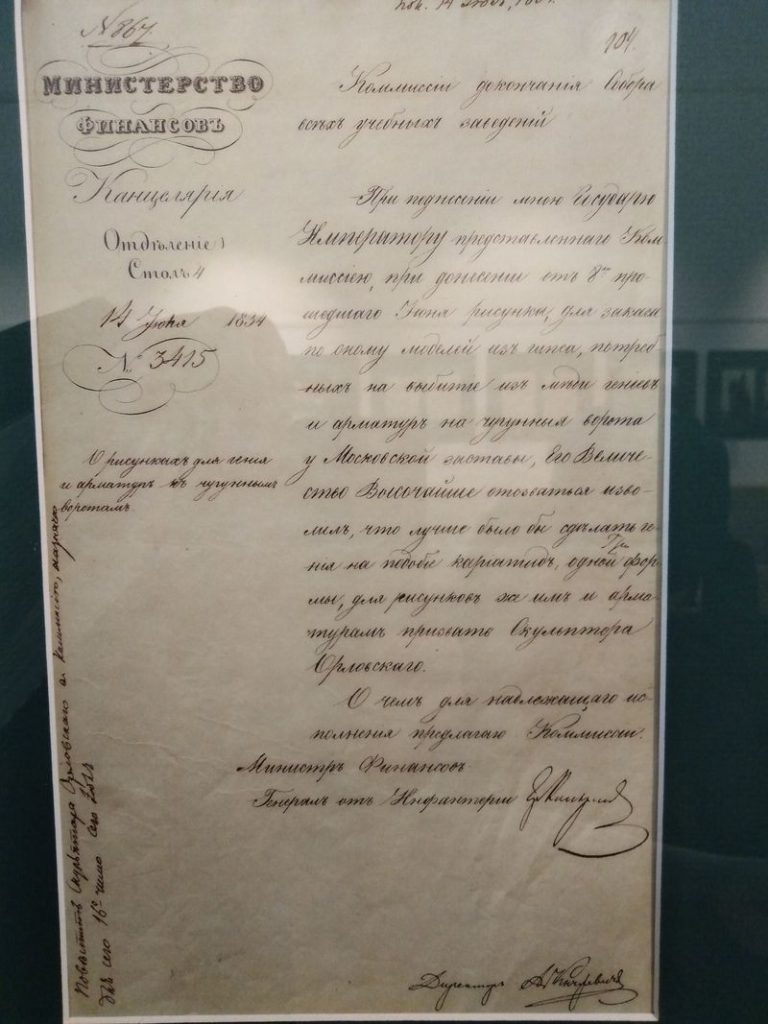 № 867.
104.
МИНИСТЕРСТВО
ФИНАНСОВЪ
Канцелярія
Отдѣленіе 1
Столъ 4
14 Іюля 1834
№ 3415
О рисункахъ для генія
и арматуръ къ чугуннымъ
воротамъ
Коммиссіи докончанія Собора
всѣхъ учебныхъ заведеній
При поднесеніи мною Государю
Императору представленнаго Ком-
миссіею, при донесеніи отъ 8го про-
шедшаго Іюня рисунка, для заказа
по оному моделей изъ гипса, потреб
ныхъ на выбитіе изъ мѣди геніевъ
и арматуръ на чугунныя ворота
у Московской заставы, Его Величе-
ство Высочайше отозваться изво-
лилъ, что лучше было бы сдѣлать ге-
нія на подобіе каріатидъ, одной фор-
мы, для рисунковъ же имъ и арма-
турамъ призвать Скульптора
Орловскаго.
О чемъ для надлежащаго ис-
полненія предлагаю Коммисіи.
Министръ Финансовъ
Генералъ отъ Инфантеріи
Директоръ
Орловскаго
сего 16го числа